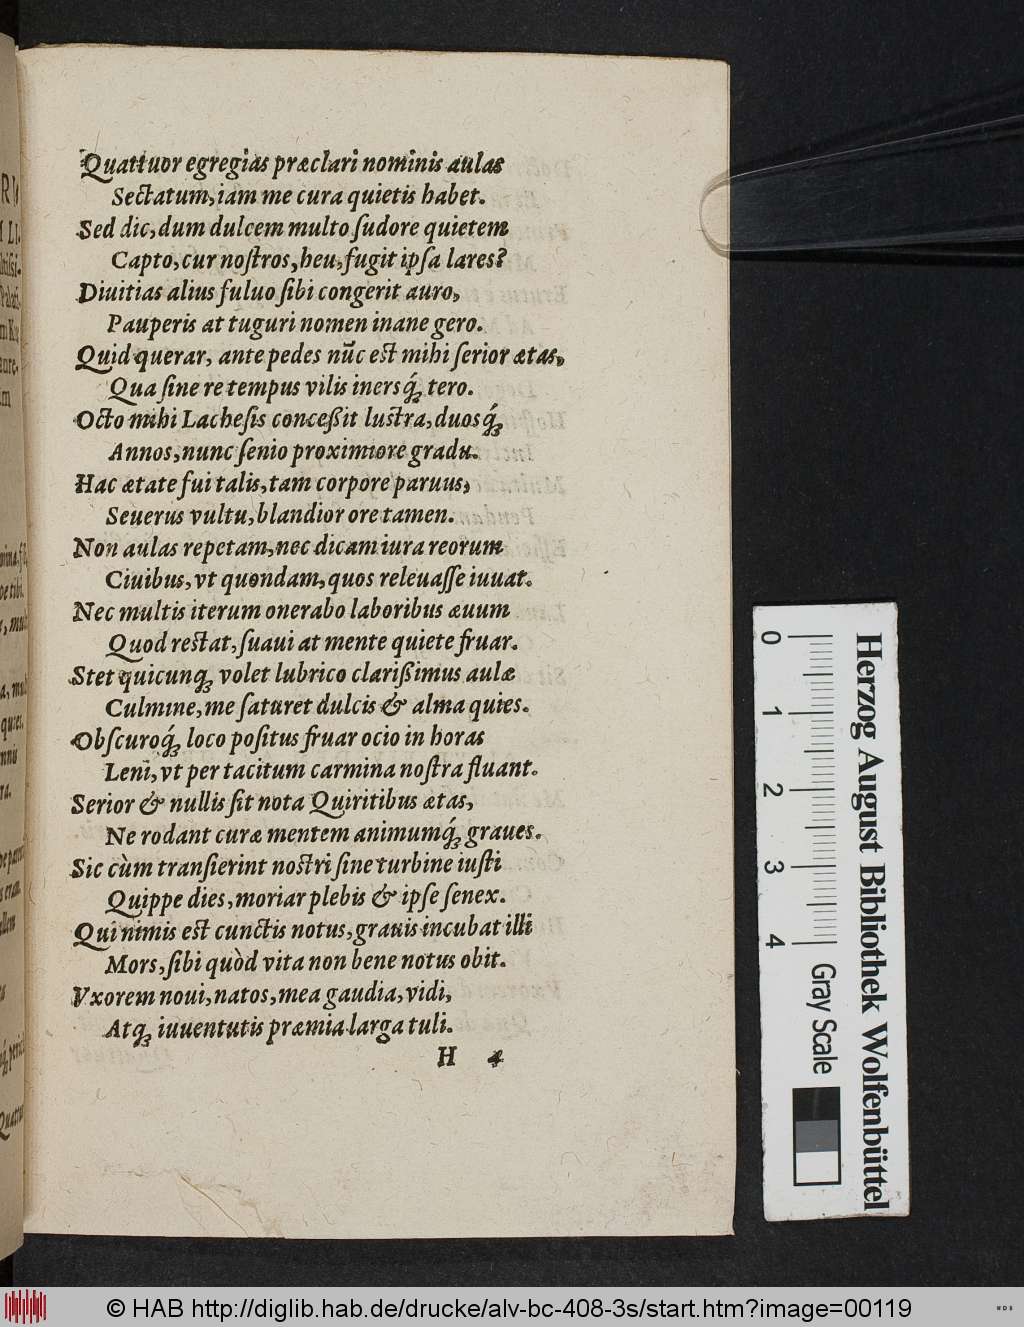 Quattuor egregias præclari nominis aulas
Sectatum, iam me cura quietis habet.
Sed dic, dum dulcem multo ſudore quietem
Capto, cur noſtros, heu, fugit ipſa lares?
Diuitias alius fuluo ſibi congerit auro,
Pauperis at tuguri nomen inane gero.
Quid querar, ante pedes nūc est mihi ſerior ætas,
Qua ſine re tempus vilis inersq́; tero.
Octo mihi Lacheſis conceßit luſtra, duosq́;
Annos, nunc ſenio proximiore gradu.
Hac ætate fui talis, tam corpore paruus,
Seuerus vultu, blandior ore tamen.
Non aulas repetam, nec dicam iura reorum
Ciuibus, vt quondam, quos releuaſſe iuuat.
Nec multis iterum onerabo laboribus æuum
Quod restat, ſuaui at mente quiete fruar.
Stet quicunq; volet lubrico clarißimus aulæ
Culmine, me ſaturet dulcis & alma quies.
Obſcuroq́; loco poſitus fruar ocio in horas
Leni, vt per tacitum carmina noſtra fluant.
Serior & nullis ſit nota Quiritibus ætas,
Ne rodant curæ mentem animumq́; graues.
Sic cùm tranſierint noſtri ſine turbine iuſti
Quippe dies, moriar plebis & ipſe ſenex.
Qui nimis est cunctis notus, grauis incubat illi
Mors, ſibi quòd vita non bene notus obit.
Vxorem noui, natos, mea gaudia, vidi,
Atq; iuuentutis præmia larga tuli.
H 4
Herzog August Bibliothek Wolfenbüttel
0 1 2 3 4 Gray Scale
© HAB http://diglib.hab.de/drucke/alv-bc-408-3s/start.htm?image=00119